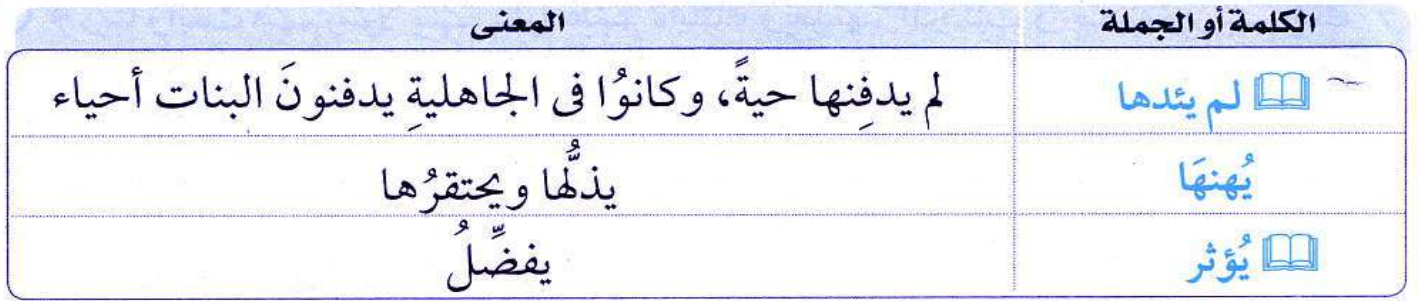 الكلمة أو الجملة المعنى
لم يئدها لم يدفِنها حيةً، وكانوُا فى الجاهليةِ يدفنونَ البنات أحياء
يُهنهَا يذلُّها ويحتقرُها
يُؤثر يفضِّلُ